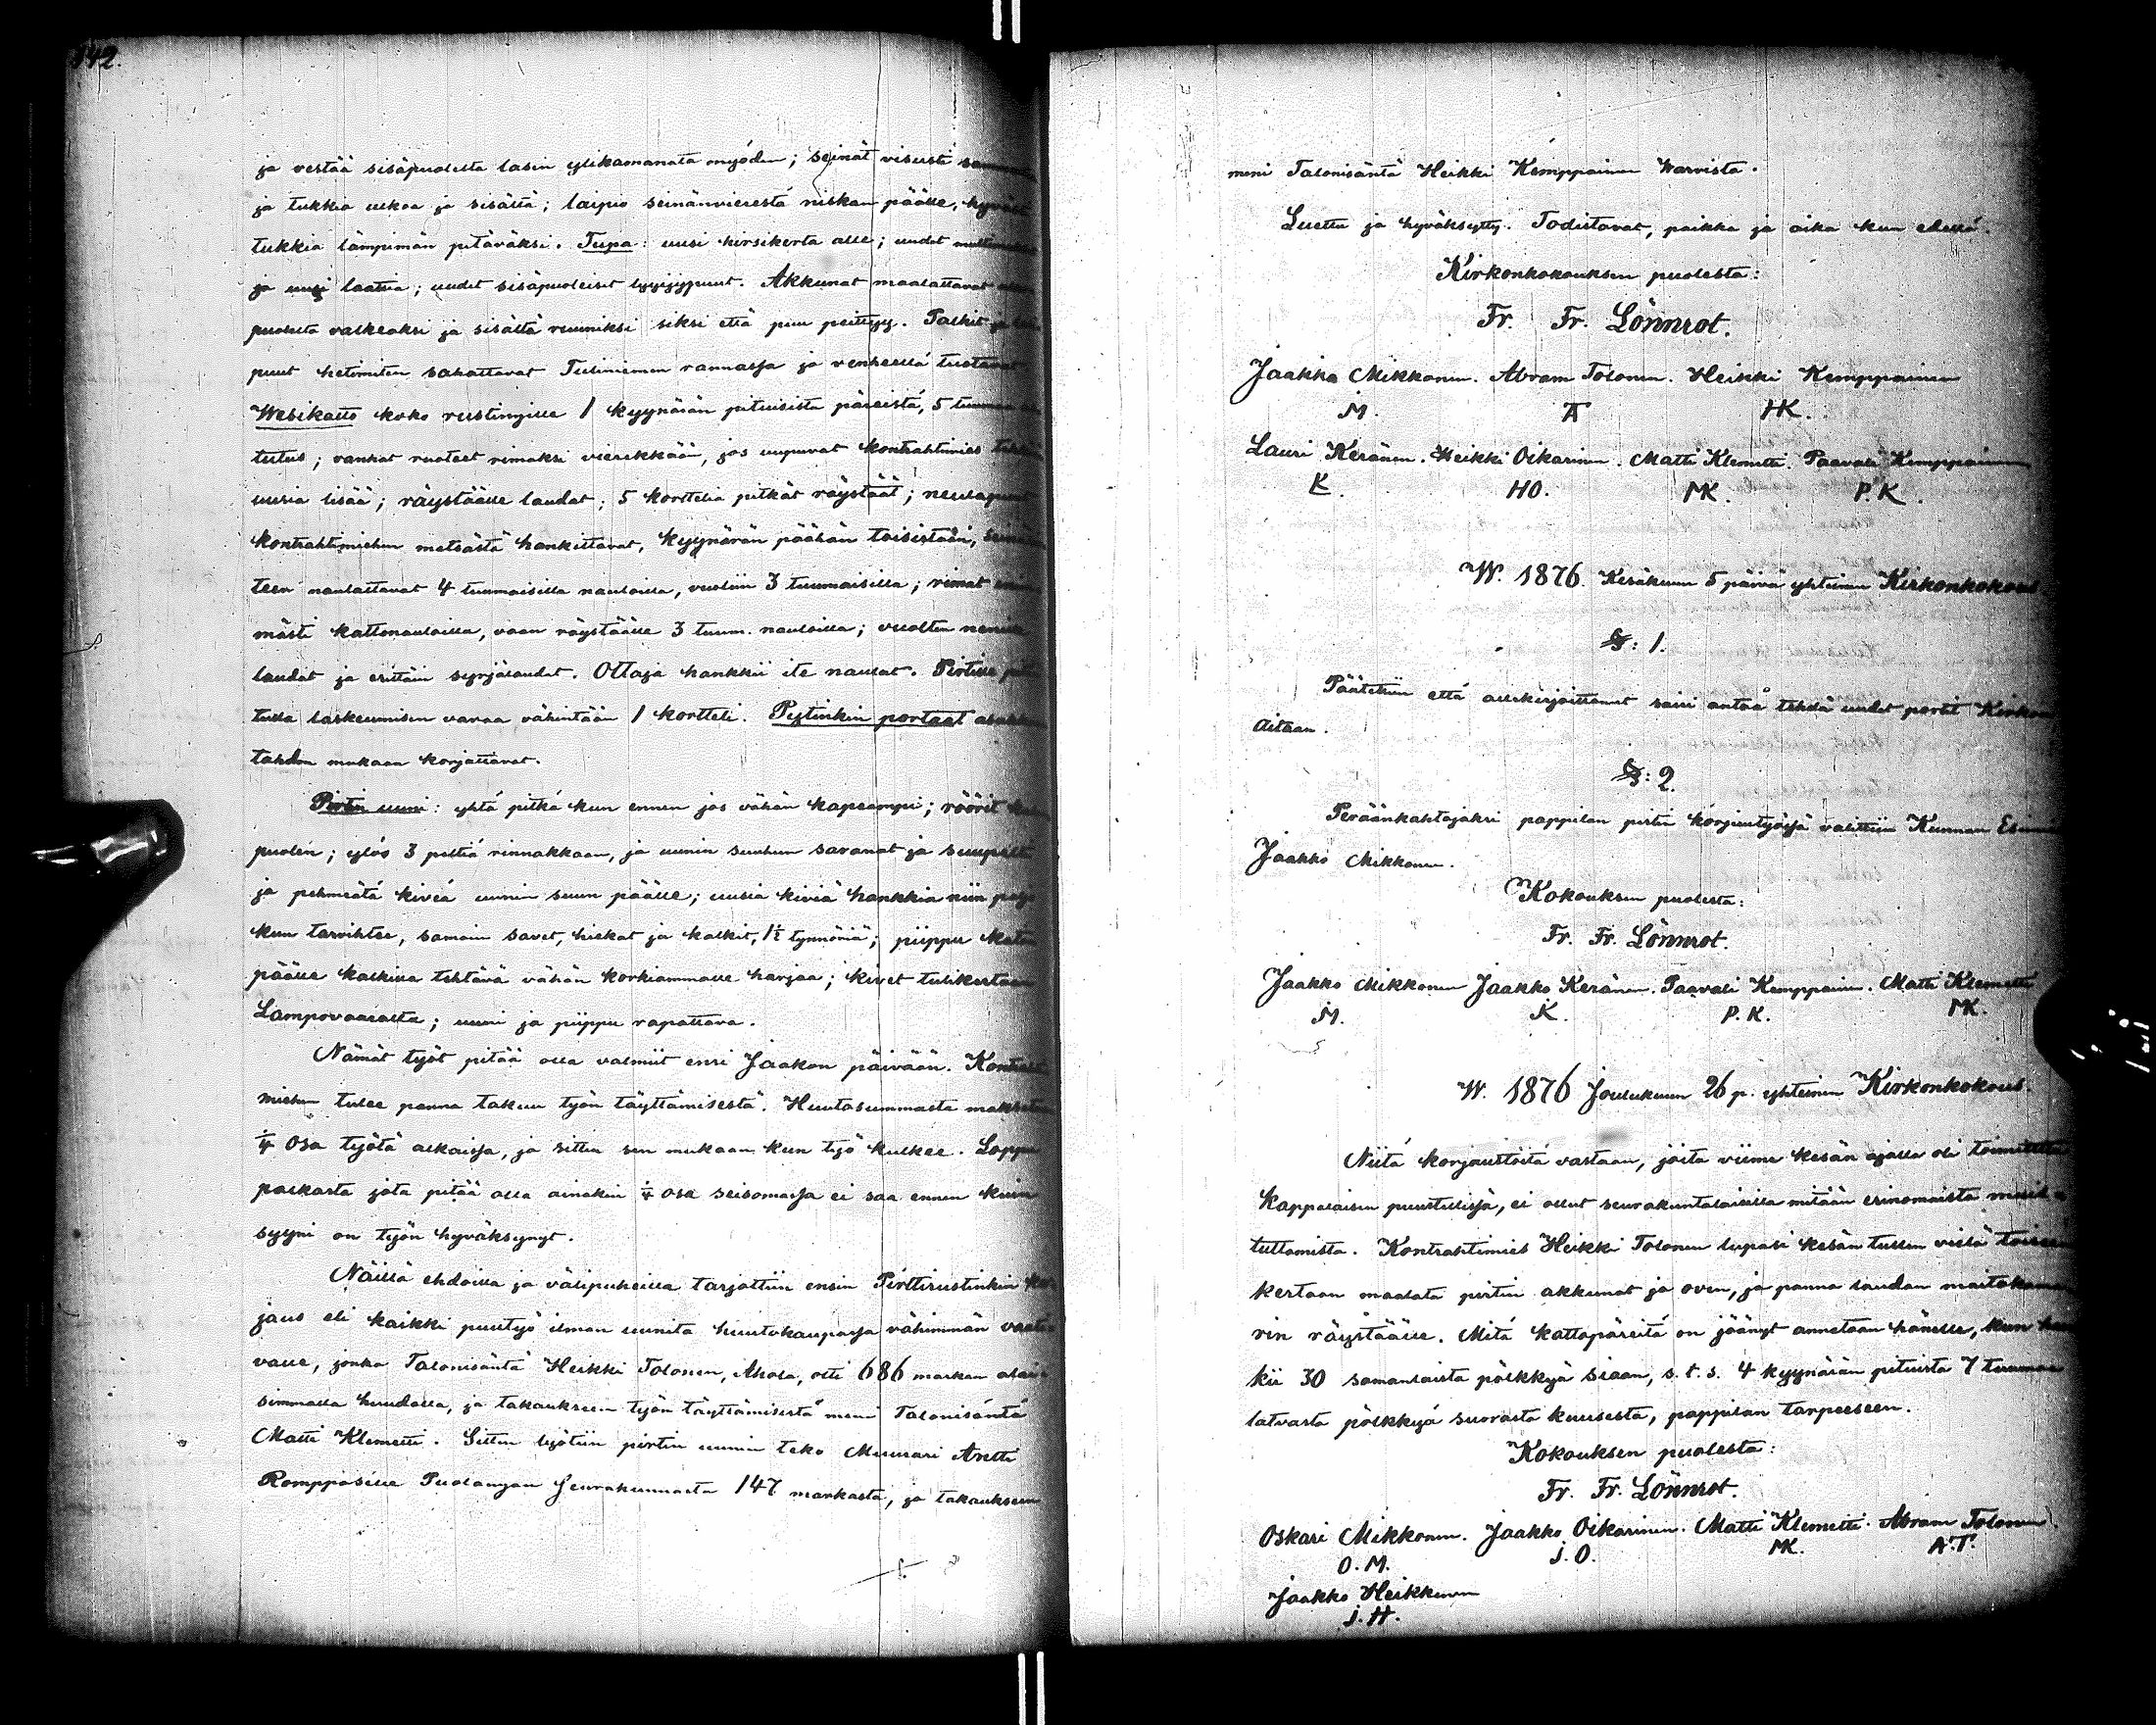 142.
ja vestää sisäpuolelta lasin ylikamanata myöden; seinät visusti
ja tukkia ulkoa ja sisältä; laipio seinänvierestä niskan päälle, hyvästi
tukkia lämpimän pitäväksi. Tupa: uusi hirsikerta alle; uudet
ja uusi laattia; uudet sisäpuoleiset lyyjyypuut. Akkunat maalattavat
puolelta valkeaksi ja sisältä ruuniksi siksi että puu peittyy. Palkit ja
puut hetimiten sahattavat Tuliniemen rannassa ja venheellä tuotavat
Wesikatto koko rustingille 1 kyynärän pituisista päreistä, 5
tutus; vanhat ruoteet rimaksi vierekkään, jos uupuvat kontrahtimies
uusia lisää; räystäälle laudat; 5 korttelia pitkät räystäät;
kontrahtimiehen metsästä hankittavat, kyynärän päähän toisistaan,
teen naulattavat 4 tuumaisilla nauloilla, vuoliin 3 tuumaisilla; rimat
mästi kattonauloilla, vaan räystäälle 3 tuum. nauloilla; vuolten
laudat ja erittäin syrjälaudat. Ottaja hankkii ite naulat. Pirtille
tulla laskeumisen varaa vähintään 1 kortteli. Pystinkin portaat
tahdon mukaan korjattavat.
Pirtin uuni: yhtä pitkä kun ennen jos vähän kapeampi; röörit
puolin; ylös 3 peltiä rinnakkaan, ja uunin suuhun saranat ja suupelti
ja pehmeätä kiveä uunin suun päälle; uusia kiviä hankkia niin paljo
kun tarvihtee, samoin savet, hiekat ja kalkit, 1½ tynnöriä; piippu katon
päälle kalkilla tehtävä vähän korkiammalle harjaa; kivet tulikertaan
Lampovaaralta; uuni ja piippu rapattava.
Nämät työt pitää olla valmiit ensi Jaakon päivään. Kontrahti
miehen tulee panna takuu työn täyttämisestä. Huutosummasta maksetaan
¼ osa työtä alkaissa, ja sitten sen mukaan kun työ kulkee. Loppu
palkasta jota pitää olla ainakin ¼ osa seisomassa ei saa ennen kuin
syyni on työn hyväksynyt.
Näillä ehdoilla ja välipuheilla tarjottiin ensin Pirttirustinkin kor
jaus eli kaikki puutyö ilman uunita huutokaupassa vähimmän vaati
valle, jonka Talonisäntä Heikki Tolonen, Ahola, otti 686 markan alai
simmalla huudolla, ja takaukseen työn täyttämisestä meni Talonisäntä
Matti Klemetti. Sitten lyötiin pirtin uunin teko Muurari Antti
Romppaselle Puolangan Seurakunnasta 147 markasta, ja takaukseen
meni Talonisäntä Heikki Kemppainen Warvista.
Luettu ja hyväksytty. Todistavat, paikka ja aika kun edellä.
Kirkonkokouksen puolesta:
Fr. Fr. Lönnrot.
Jaakko Mikkonen. Abram Tolonen. Heikki Kemppainen
M. A HK.
Lauri Keränen. Heikki Oikarinen. Matti Klemetti. Paavali Kemppainen
K. HO. MK. P.K.
W. 1876. Kesäkuun 5 päivä yhteinen Kirkonkokous
§: 1.
Päätettiin että allekirjoittanut saisi antaa tehdä uudet portit Kirkon
Aitaan.
§: 2.
Peräänkahtojaksi pappilan pirtin korjuutyössä valittiin Kunnan
Jaakko Mikkonen.
Kokouksen puolesta:
Fr. Fr. Lönnrot.
Jaakko Mikkonen Jaakko Keränen. Paavali Kemppainen. Matti Klemetti
M. K. P.K. MK.
W. 1876 Joulukuun 26 p. yhteinen Kirkonkokous.
Niitä korjaustöitä vastaan, joita viime kesän ajalla oli toimitettu
Kappalaisen puustellissa, ei ollut seurakuntalaisilla mitään erinomaista muis
tuttamista. Kontrahtimies Heikki Tolonen lupasi kesän tullen vielä toisen
kertaan maalata pirtin akkunat ja oven, ja panna laudan maitokama
rin räystäälle. Mitä kattopäreitä on jäänyt annetaan hänelle, kun
kii 30 samanlaista pölkkyä siaan, s. t. s. 4 kyynärän pituista 7
latvasta pölkkyä suorasta kuusesta, pappilan tarpeeseen.
Kokouksen puolesta:
Fr. Fr. Lönnrot.
Oskari Mikkonen. Jaakko Oikarinen. Matti Klemetti. Abram Tolonen.
O.M. J.O. MK. A.T.
Jaakko Heikkinen
J.H.